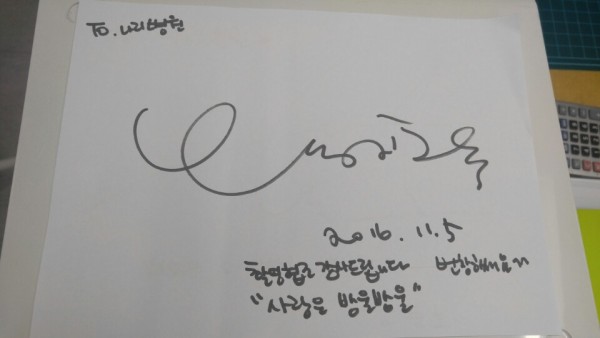 To. 나리병원
2016. 11. 5
촬영협조 감사드립니다 번창하세요~
"사랑은 방울방울"